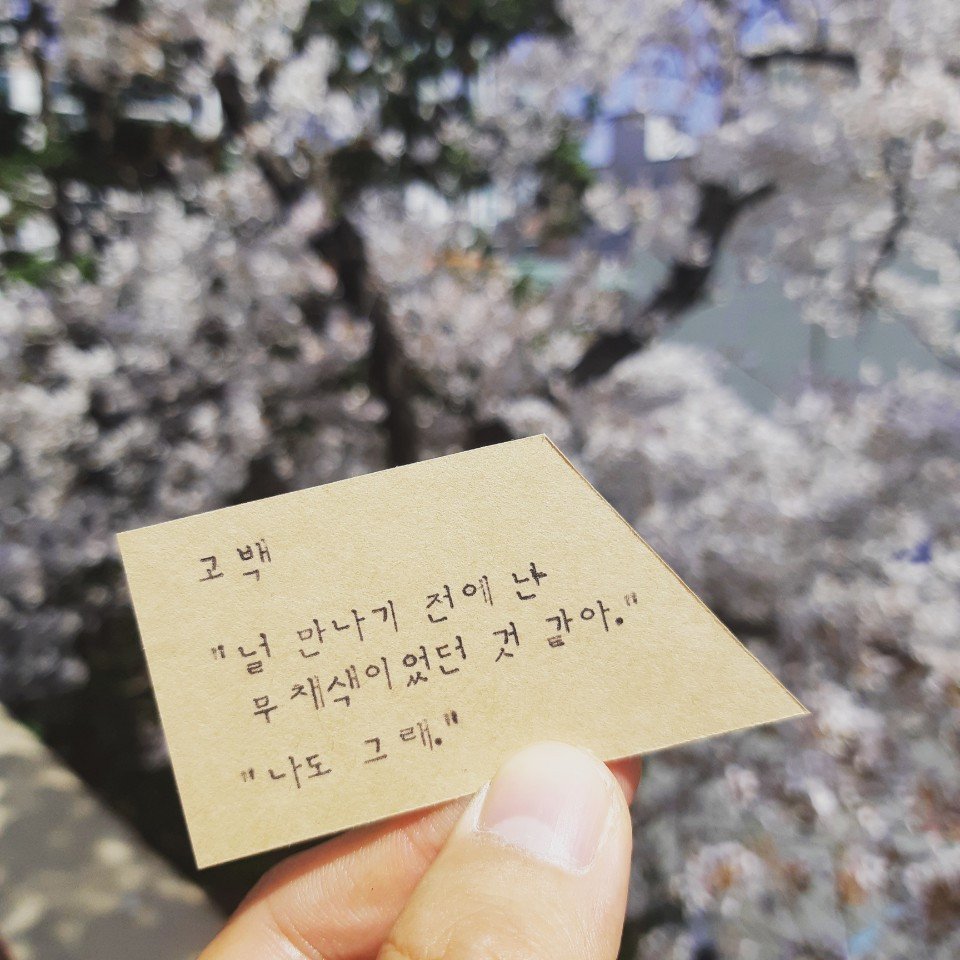 고백
"널 만나기 전에 난
무채색이었던 것 같아."
"나도 그래."